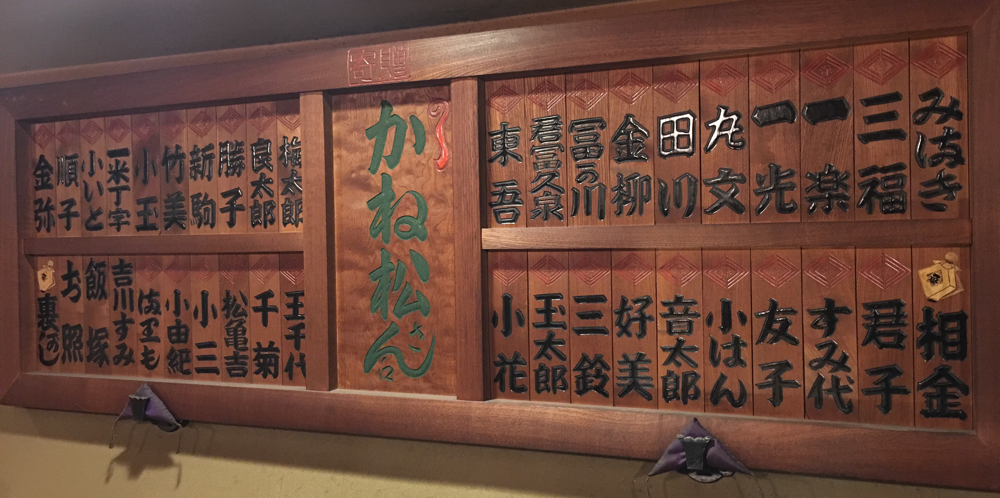 寄贈
みはき
三福
一楽
一光
丸文
田川
金柳
冨の川
君冨久泉
東吾
相金
君子
すみ代
友子
小はん
音太郎
好美
三鈴
玉太郎
小花
かね松さん
梅太郎
良太郎
勝子
新駒
竹美
小玉
一米丁字
小いと
順子
金弥
玉千代
千菊
松亀吉
小三
小由紀
吉川すみ
飯塚
お照